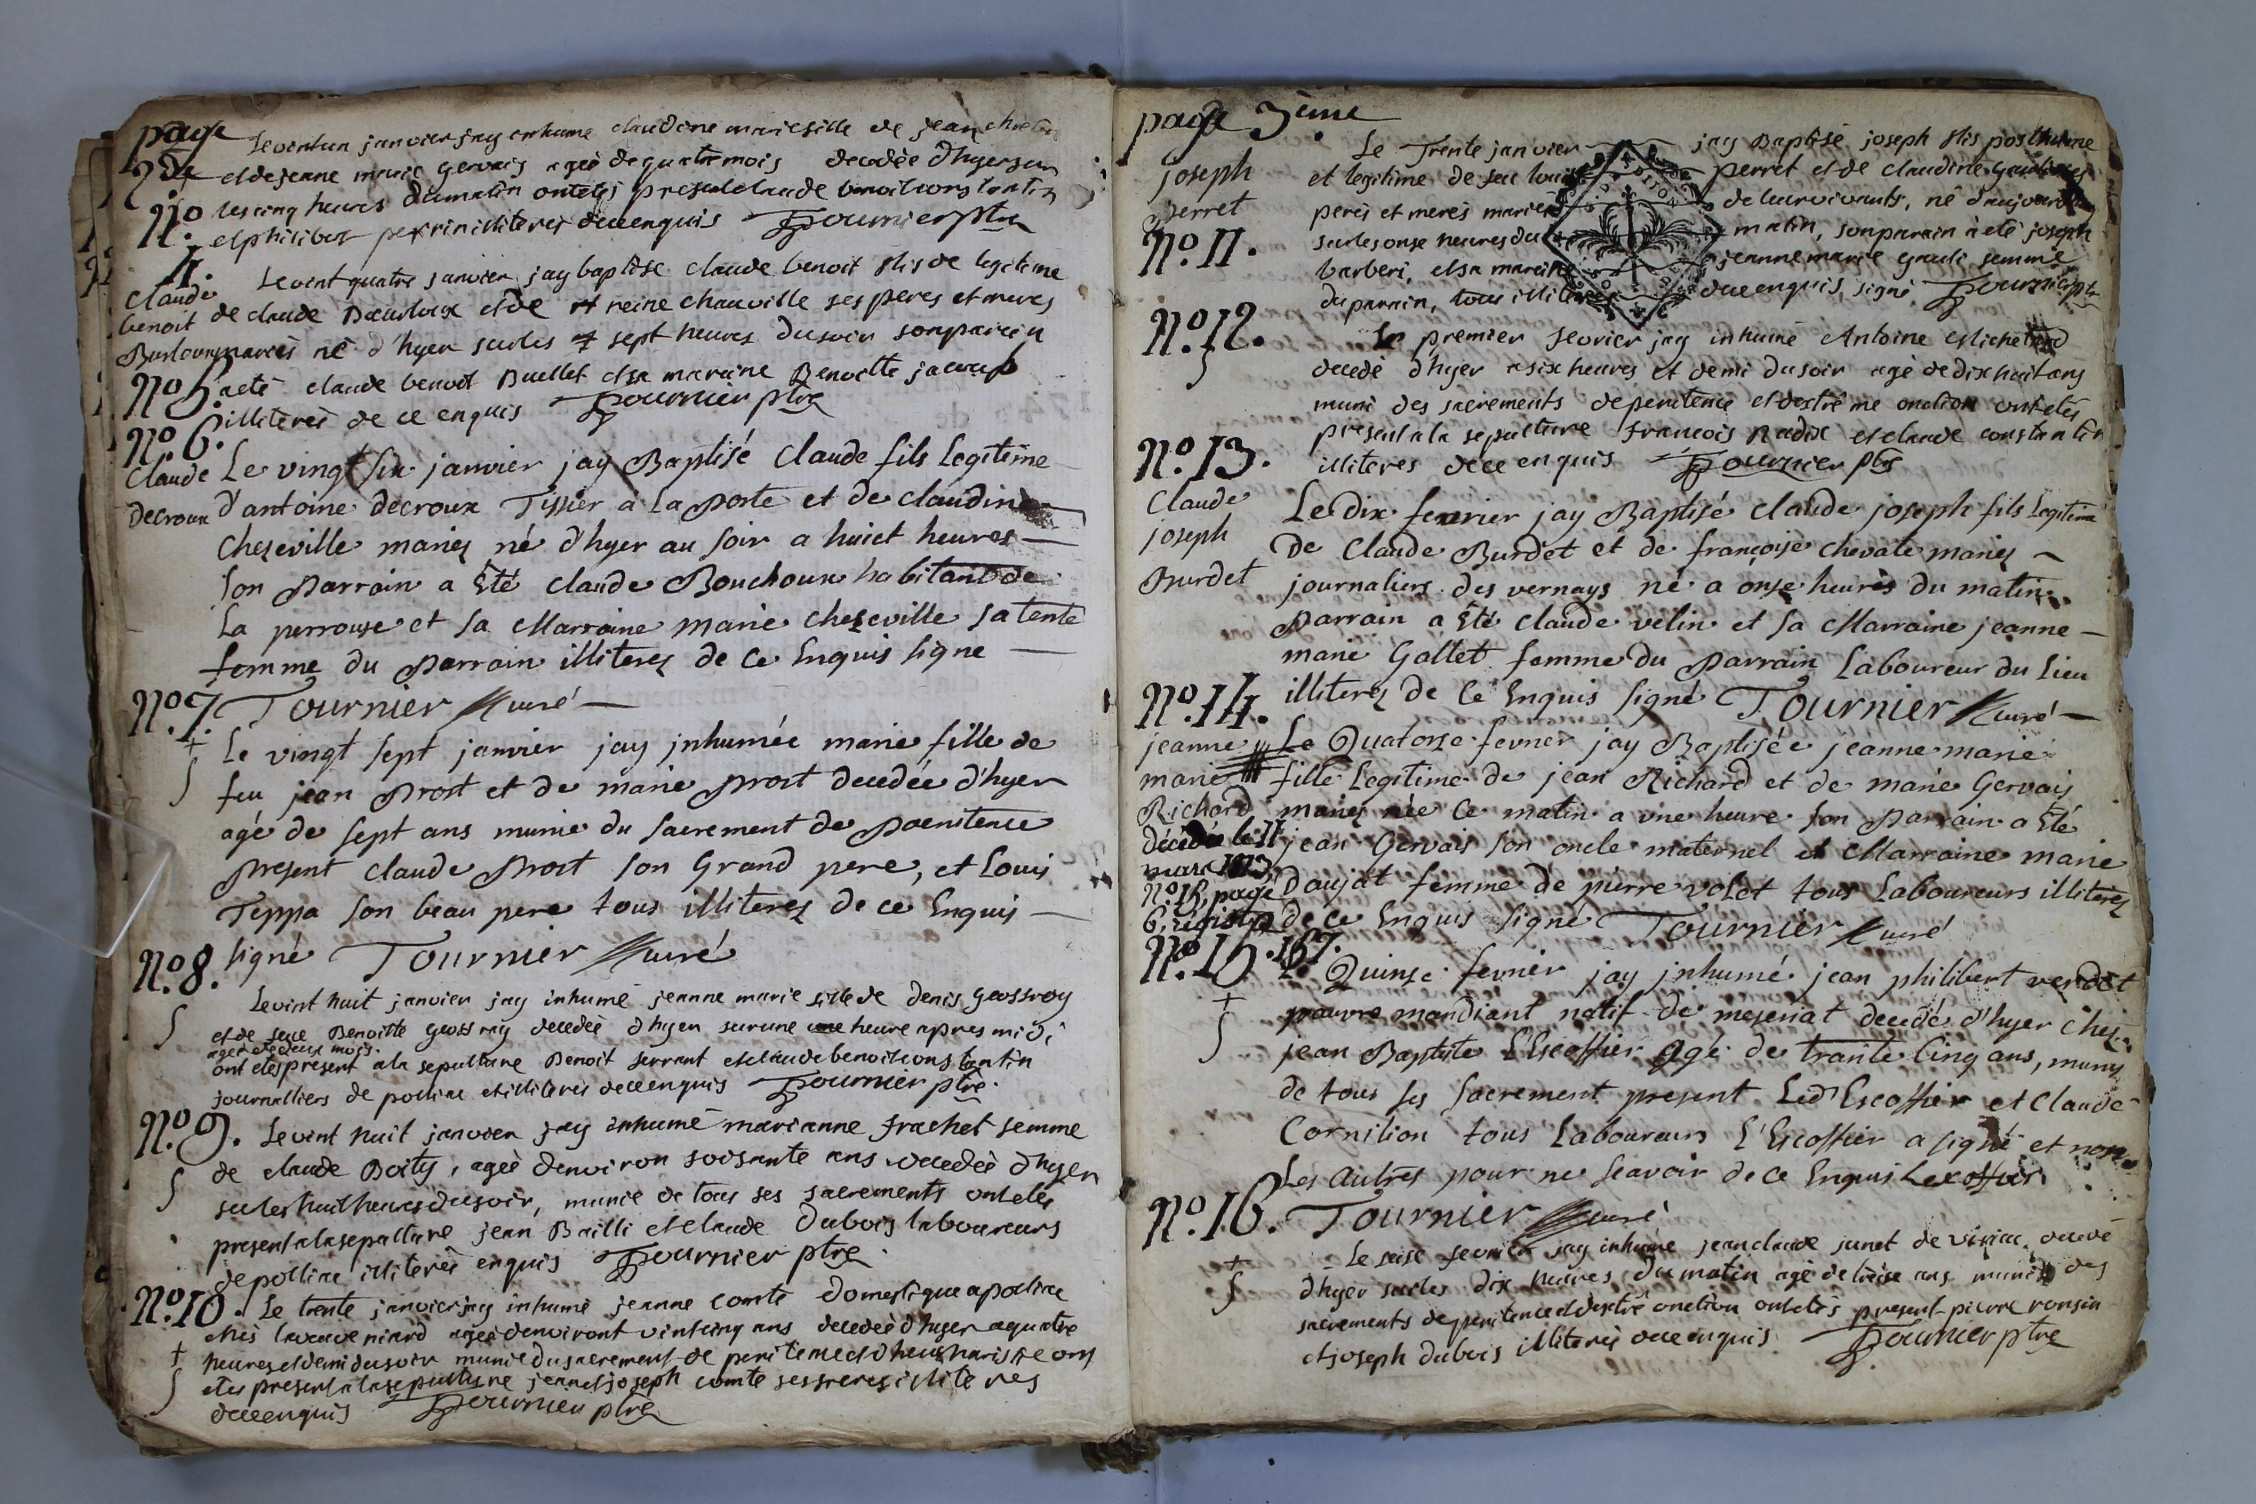 page
2de
Le vint un janvier jay inhumé claudine marie fille de jean chretin
et de jeanne marie gervais agée de quatre mois decedée d'hyer sur
les cinq heures du matin ont etés present claude benoit constantin
et philibert perrin illiteres de ce enquis Tournier ptre
No
4.
Le vint quatre janvier jay baptisé claude benoit fils de legitime
claude
benoit
de claude Bourloux et de reine chauville ses peres et meres
mariés né d'hyer sur les 7 sept heures du soir son parain
No 5.
a eté claude benoit Buellet et sa maraine Benoitte jacoup
illiterés de ce enquis Tournier ptre
No. 6.
Claude
decroux
Le vingt six janvier jay Baptisé Claude fils Legitime
d'antoine decroux Tissier a La poste et de claudine
Cheseville mariez né d'hyer au soir a huict heures
son parrain a Eté Claude Bouchoux habitant de
La perrouse et sa Marraine marie cheseville sa tente
femme du parrain illiterez de Ce Enquis signe
No. 7.
Tournier curé
Le vingt sept janvier jay jnhumée marie fille de
feu jean prost et de marie prost decedée d'hyer
agé de sept ans munie du sacrement de poenitence
present claude prost son Grand pere, et Louis
Teppa son beau pere tous illiterez de ce Enquis
No. 8.
signé Tournier curé
Le vint huit janvier jay inhumé jeanne marie fille de denis geoffroy
et de feue Benoitte geoffray decedée d'hyer sur une heure apres midi
agée de deux mois.
ont etés present a la sepulture Benoit serrant et claude benoit constantin
journalliers de polliac et illiterés de ce enquis Tournier ptre.
No. 9.
Le vint huit janvier jay inhumé marianne frachet femme
de claude Boity, agée denviron soisante ans decedée d'hyer
sur les huit heures du soir, munie de tous ses sacrements ont etés
present a la sepulture jean Bailli et claude Dubois laboureurs
de polliac illiterés enquis Tournier ptre.
No. 10.
Le trente janvier jay inhumé jeanne comte domestique a polliac
chés la veuve niard agée denviront vint cinq ans decedée d'hyer a quatre
heures et demi du soir munie du sacrement de penitence et d'heucharistie ont
etés present a la sepulture jean et joseph comte ses freres illiteres
de ce enquis Tournier ptre
page 3ème
joseph
perret
No. 11.
Le Trente janvier jay Baptisé joseph fils posthume
et legitime de feu louis perret et de claudine
perés et merés mariés de leur vivants, né d'aujourd'hui
sur les onse heures du matin, son parain a eté joseph
barberi, et sa maraine jeanne marie femme
du parain, tous illiteres de ce enquis, signé Tournier ptre
No. 12.
Le premier fevrier jay inhumé Antoine Micheland
decedé d'hyer a six heures et demi du soir agé de dix huit ans
muni des sacrements de penitence et d'extrême onction ont etés
present a la sepulture francois Nadix et claude constantin
illiteres de ce enquis Tournier ptre
No. 13.
Claude
joseph
Burdet
Le dix fevrier jay Baptisé Claude joseph fils Legitime
de Claude Burdet et de françoise chevate mariez
journaliers des vernays né a onze heures du matin
parrain a Eté Claude velin et sa Marraine jeanne
marie Gallet femme du parrain Laboureur du Lieu
illiterez de Ce Enquis signé Tournier curé
No. 14.
jeanne
marie
Richard
décédée le 11
mars 1773
No. 18. page
6. registre
Le Quatorze fevrier jay Baptisée jeanne marie
fille Legitime de jean Richard et de marie Gervais
mariez née Ce matin a une heure son parrain a Eté
jean Gervais son oncle maternel et Marraine marie
Daujat femme de pierre volet tous Laboureurs illiterez
de Ce Enquis signe Tournier curé
No. 15.
Le Quinze fevrier jay jnhumé jean philibert verdet
pauvre mandiant natif de meseriat decedé d'hyer chez
jean Baptiste L'Escoffier agé de trante Cinq ans, muny
de tous ses Sacrement present Led' Escoffier et Claude
Cornilion tous Laboureurs L'Escoffier a signé et non
Les autres pour ne Scavoir de Ce Enquis Lexoffier
No. 16.
Tournier curé
Le seise fevrier jay inhumé jean claude junet de viriac decedé
d'hyer sur les dix heures du matin agé de treise ans munis des
sacrements de penitence et dextre onction ont etés present pierre ronsin
et joseph dubois illiterés de ce enquis. Tournier ptre